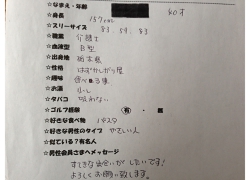 ☆なまえ・年齢 40才
☆身長 157cm
☆スリーサイズ 83. 59. 83
☆職業 介護士
☆血液型 B型
☆出身地 栃木県
☆性格 はずかしがり屋
☆趣味 食べる事
☆お酒 少し
☆タバコ 吸わない
☆ゴルフ経験 有・無
☆好きな食べ物 パスタ
☆好きな男性のタイプ やさしい人
☆似ている?有名人
☆男性会員さまへメッセージ
すてきな出会いがしたいです!
よろしくお願い致します。